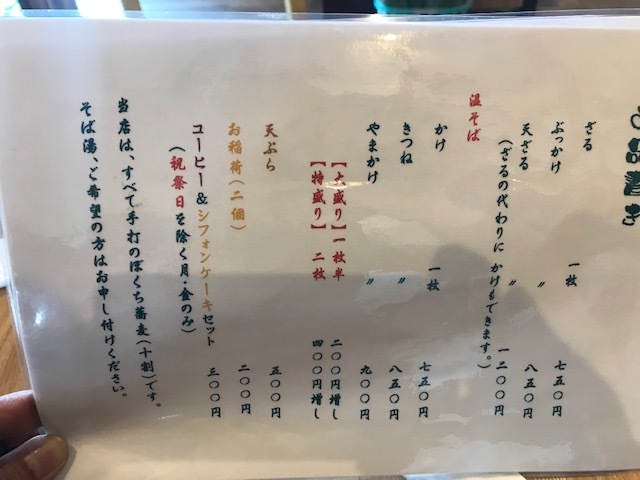 お品書き
ざる 一枚 七五〇円
ぶっかけ 〃 八五〇円
天ざる 〃 一二〇〇円
(ざるの代わりに かけもできます。)
温そば
かけ 一枚 七五〇円
きつね 〃 八五〇円
やまかけ 〃 九〇〇円
【大盛り】一枚半 二〇〇円増し
【特盛り】 二枚 四〇〇円増し
天ぷら 五〇〇円
お稲荷(二個) 二〇〇円
コーヒー&シフォンケーキセット 三〇〇円
(祝祭日を除く月・金のみ)
当店は、すべて手打のぼくち蕎麦(十割)です。
そば湯、ご希望の方はお申し付けください。